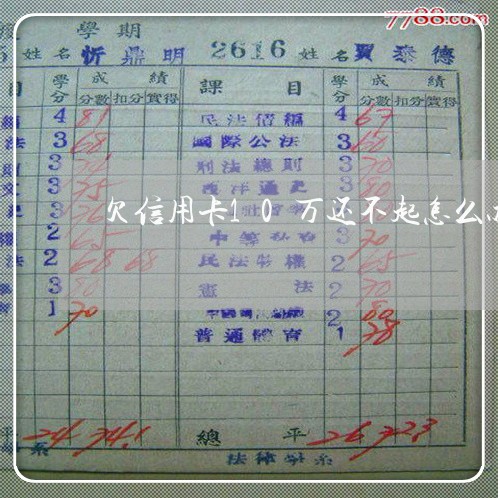 7788.com
學期
姓名 忻鼎明 2616 姓名 賈泰德
目 學分 成績 課目 學分 成績
分數 扣分 實得 分數 扣分 實得
4 81 民法債編 4 67
法 3 68 國際公法 3 60
3 刑法總則 3 70
3 75 西洋通史 3 80
欠信用卡10万还不起怎么
2 65 3 70
法 2 68 68 民法物權 2 65
3 80 憲法 2 70
1 70 2 80
普通體育 1 78
平 24 74.1 總平 26 72.3
系 法律學系